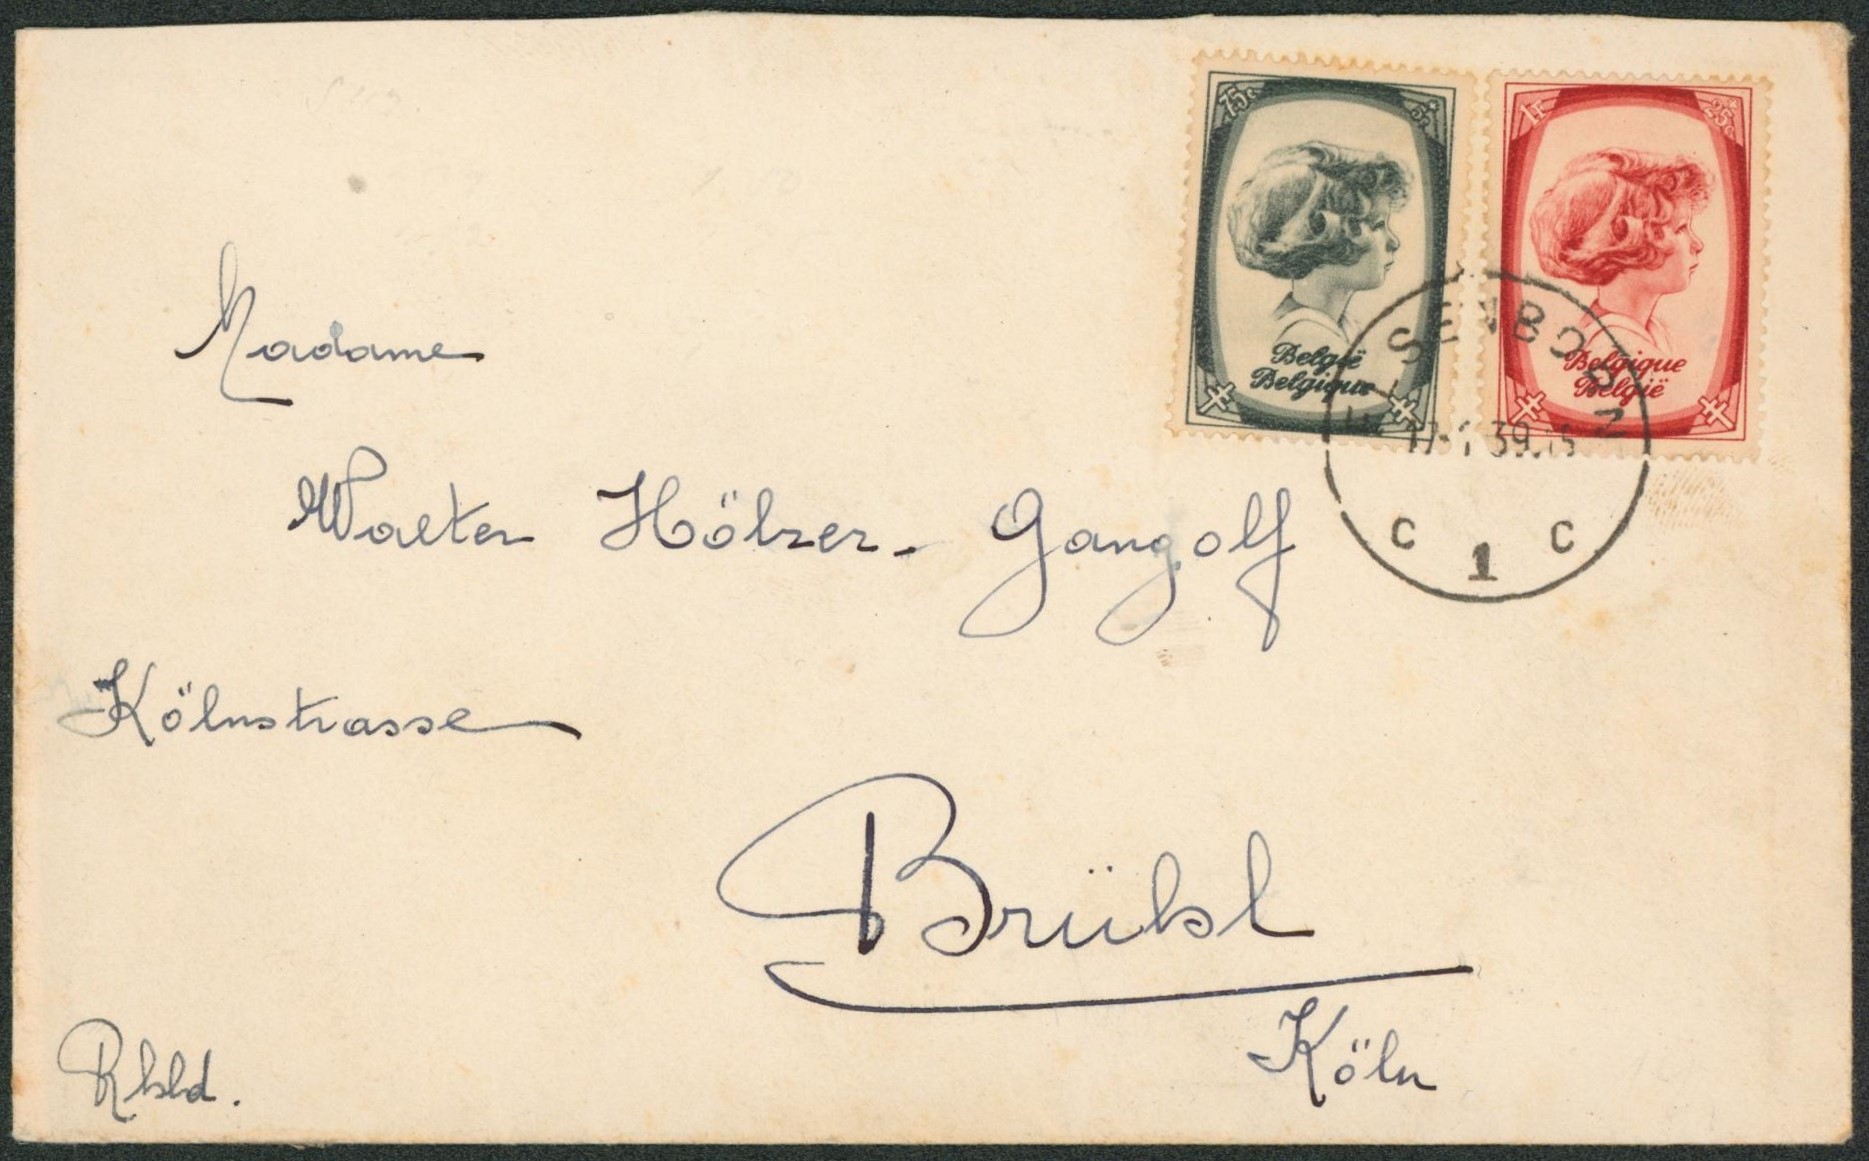 75c +5c
1F +25c
België
Belgique
Belgique
België
C 1 C
Madame
Walter Hölzer-Gangolf
Kölnstrasse
Brühl
Köln
Rhld.